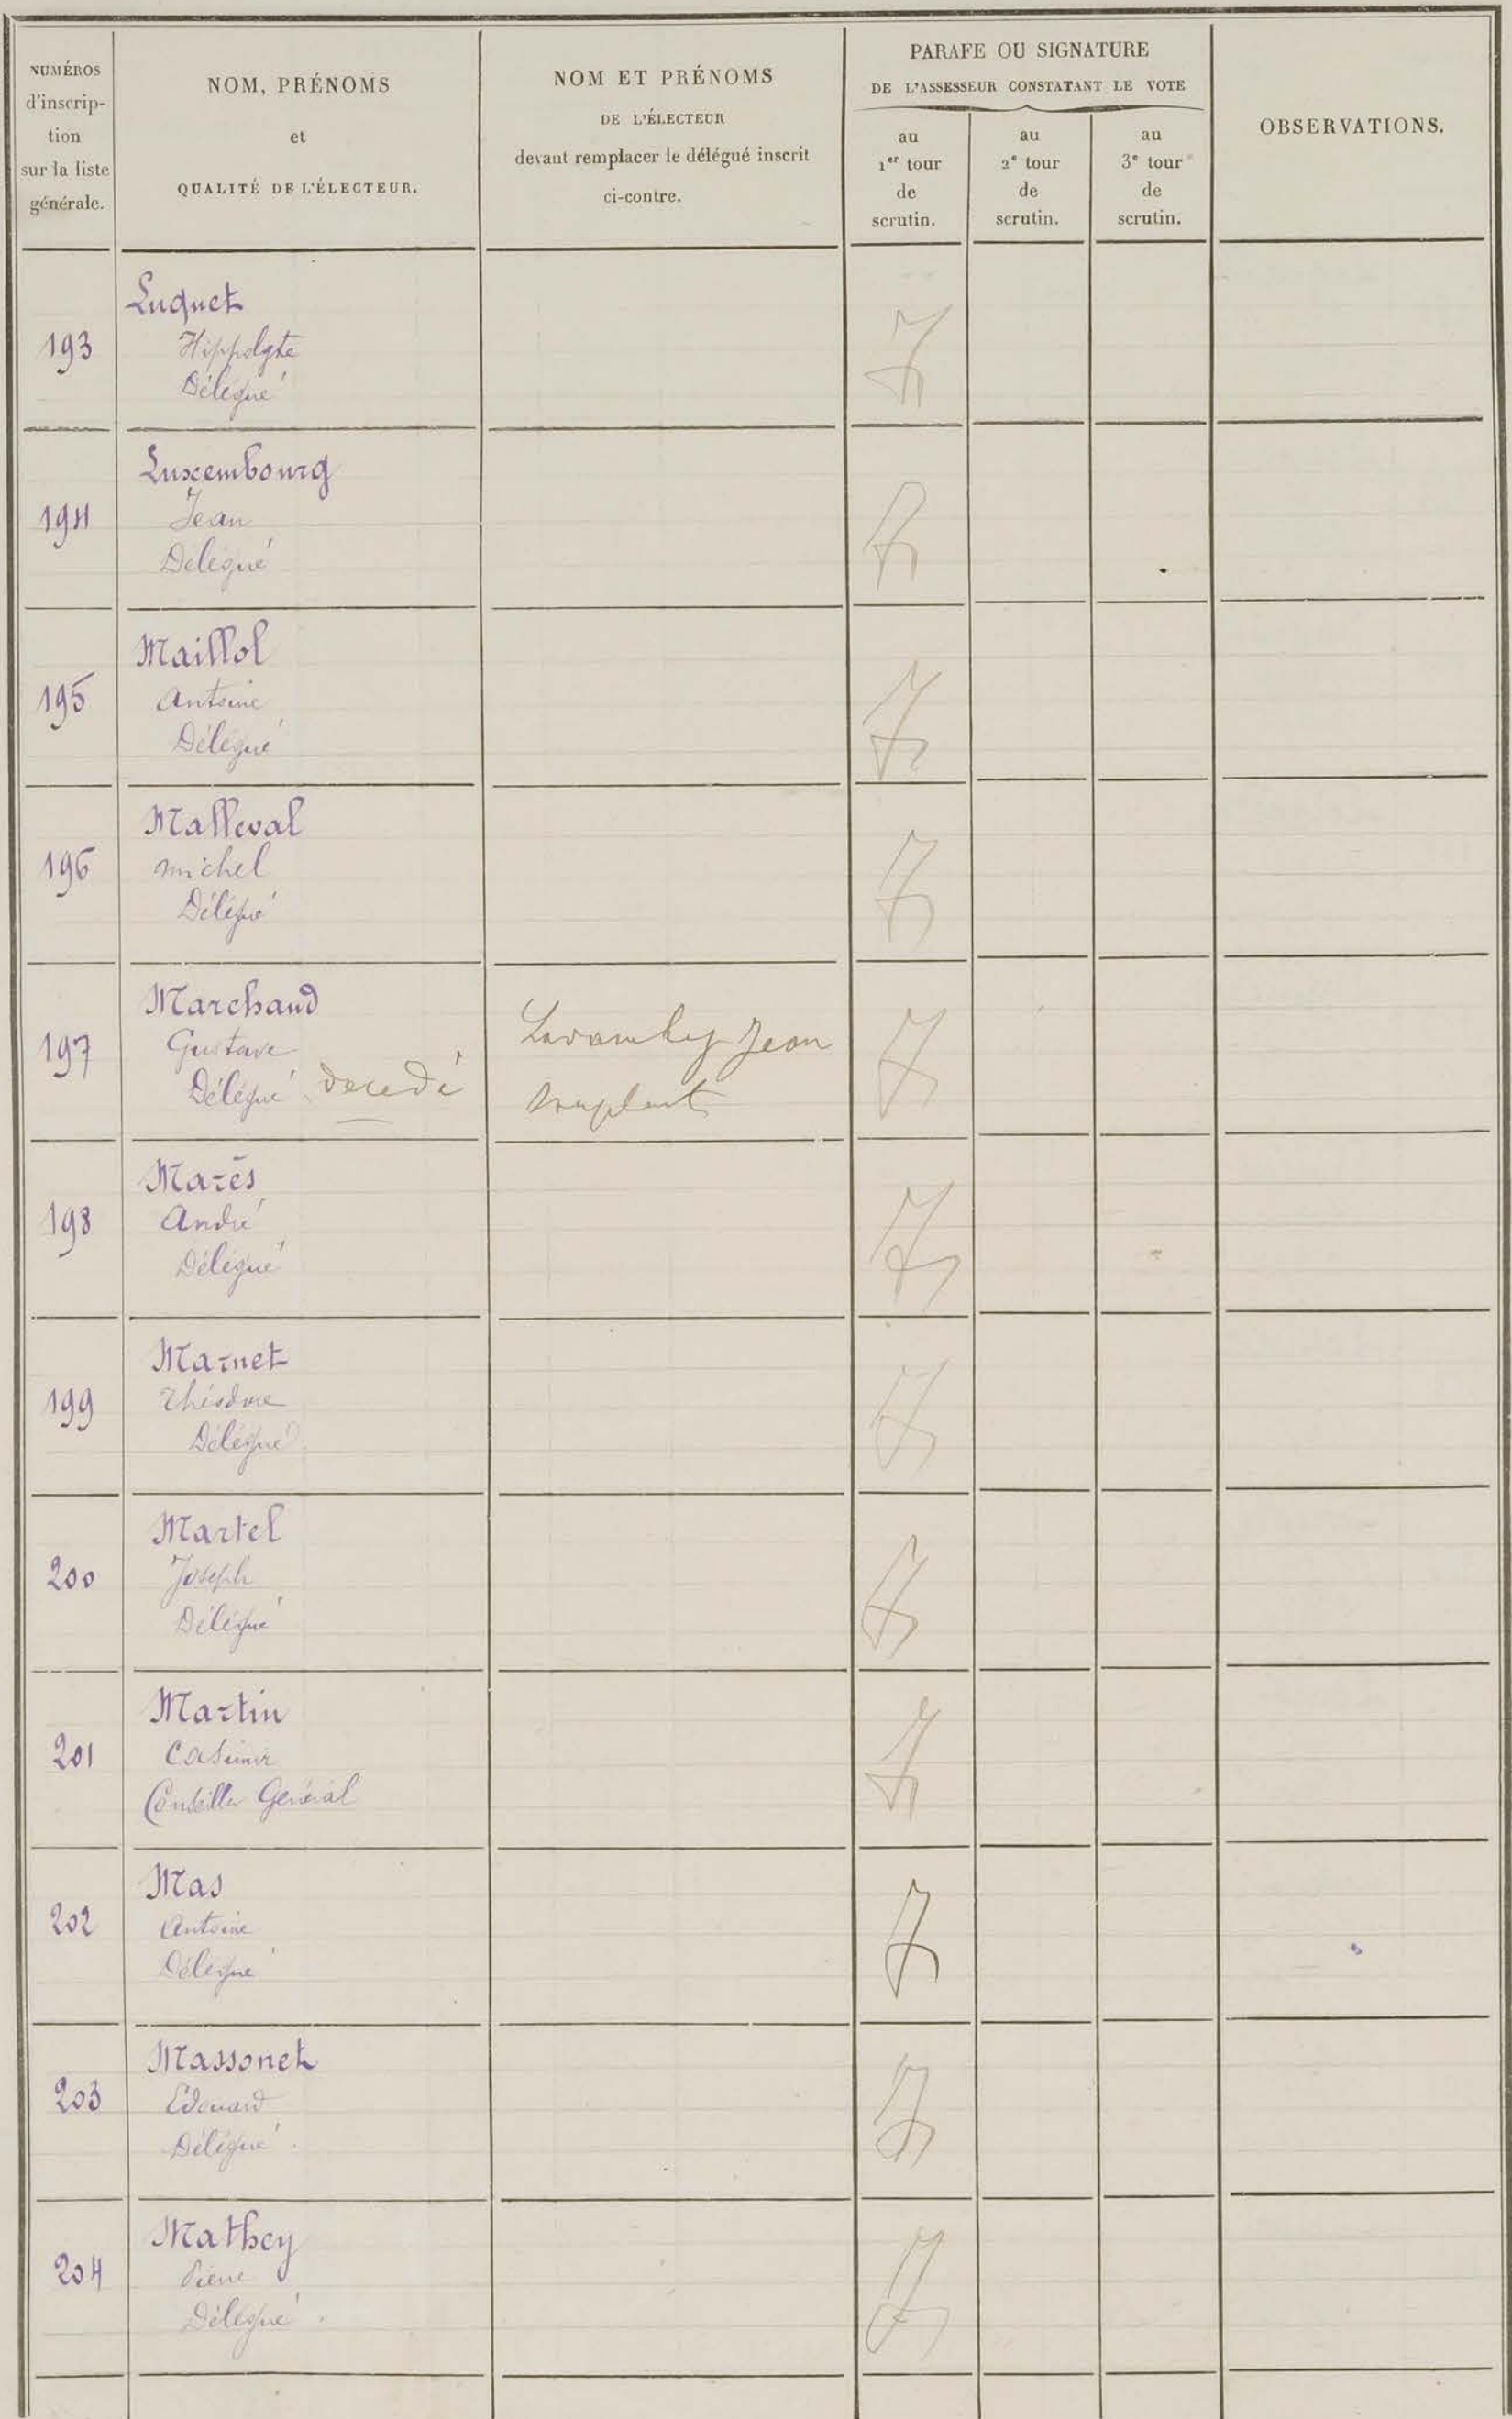 NUMÉROS
d'inscrip-
tion
sur la liste
générale.
NOM, PRÉNOMS
et
QUALITÉ DE L'ÉLECTEUR.
NOM ET PRÉNOMS
DE L'ÉLECTEUR
devant remplacer le délégué inscrit
ci-contre.
PARAFE OU SIGNATURE
DE L'ASSESSEUR CONSTATANT LE VOTE
au
1er tour
de
scrutin.
au
2e tour
de
scrutin.
au
3e tour
de
scrutin.
OBSERVATIONS.
193
Luquet
Hippolyte
Délégué
194
Luxembourg
Jean
Délégué
195
Maillol
Antoine
Délégué
196
Malleval
Michel
Délégué
197
Marchand
Gustave
Délégué décédé
Jean
198
Marès
André
Délégué
199
Marnet
Théodore
Délégué
200
Martel
Joseph
Délégué
201
Martin
Casimir
Conseiller Général
202
Mas
Antoine
Délégué
203
Massonet
Edouard
Délégué
204
Mathey
Pierre
Délégué